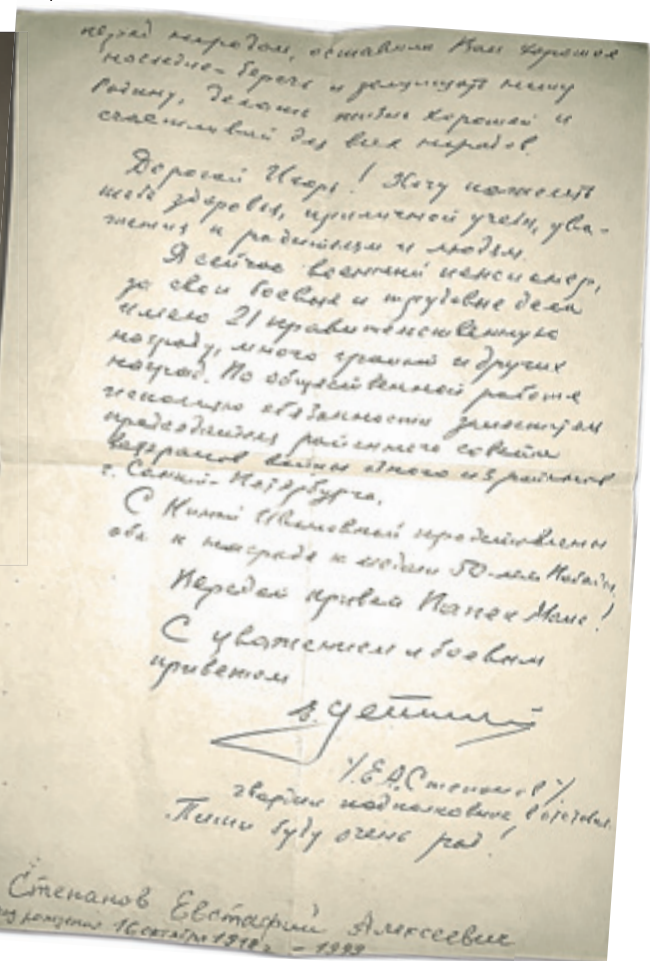 перед народом, оставили Вам хорошее
наследие - беречь и защищать нашу
Родину, делать жизнь хорошей и
счастливой для всех народов.
Дорогой Игорь! Хочу пожелать
тебе здоровья, приличной учебы, ува-
жения к родителям и людям.
Я сейчас военный пенсионер,
за свои боевые и трудовые дела
имею 21 правительственную
награду, много грамот и других
наград. По общественной работе
исполняю обязанности заместителя
председателя районного совета
ветеранов войны одного из районов
г. Санкт-Петербурга.
С Ниной Ивановной представлены
оба к награде к медали 50-лет Победы.
Передай привет Папе и Маме!
С уважением и боевым
приветом
/Е.А.Степанов/
гвардии подполковник в отставке.
Пиши буду очень рад!
Степанов Евстафий Алексеевич
рождения 16 октября 1918 г. - 1999